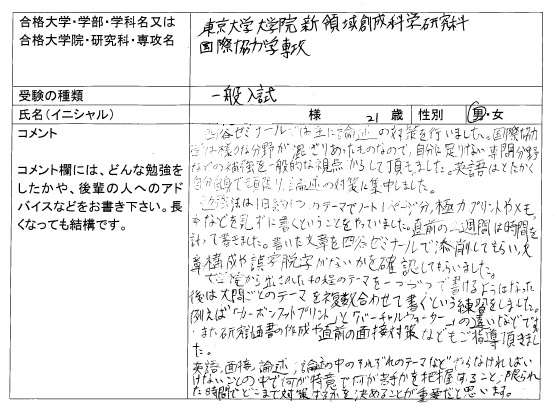 合格大学・学部・学科名又は
合格大学院・研究科・専攻名
東京大学大学院新領域創成科学研究科
国際協力学専攻
受験の種類
一般入試
氏名(イニシャル)
様 21歳 性別 男・女
コメント
コメント欄には、どんな勉強を
したかや、後輩の人へのアド
バイスなどをお書き下さい。長
くなっても結構です。
四谷ゼミナールでは主に論述の対策を行いました。国際協力
学は様々な分野が混ざりあったものなので、自分に足りない専門分野
などの補強を一般的な視点からして頂きました。英語はとにかく
自分自身で頑張り、論述の対策に集中しました。
勉強法は1日約1つのテーマでノート1ページ分、極力プリントやメモ
などを見ずに書くということをやっていました。直前の二週間は時間を
計って書きました。書いた文章を四谷ゼミナールで添削してもらい、文
章構成や誤字脱字がないかを確認してもらいました。
から出された40程のテーマを一つずつで書けるようになった
後は大問ごとのテーマを複数合わせて書くという練習をしました。
例えば「カーボンフットプリント」と「バーチャルウォーター」の違いなどです。
また研究計画書の作成や直前の面接対策などもご指導頂きま
した。
英語、面接、論述、論述の中のそれぞれのテーマなどやらなければい
けないことの中で何が得意で何が苦手かを把握すること、限られ
た時間でどこまで対策するかを決めることが重要だと思います。